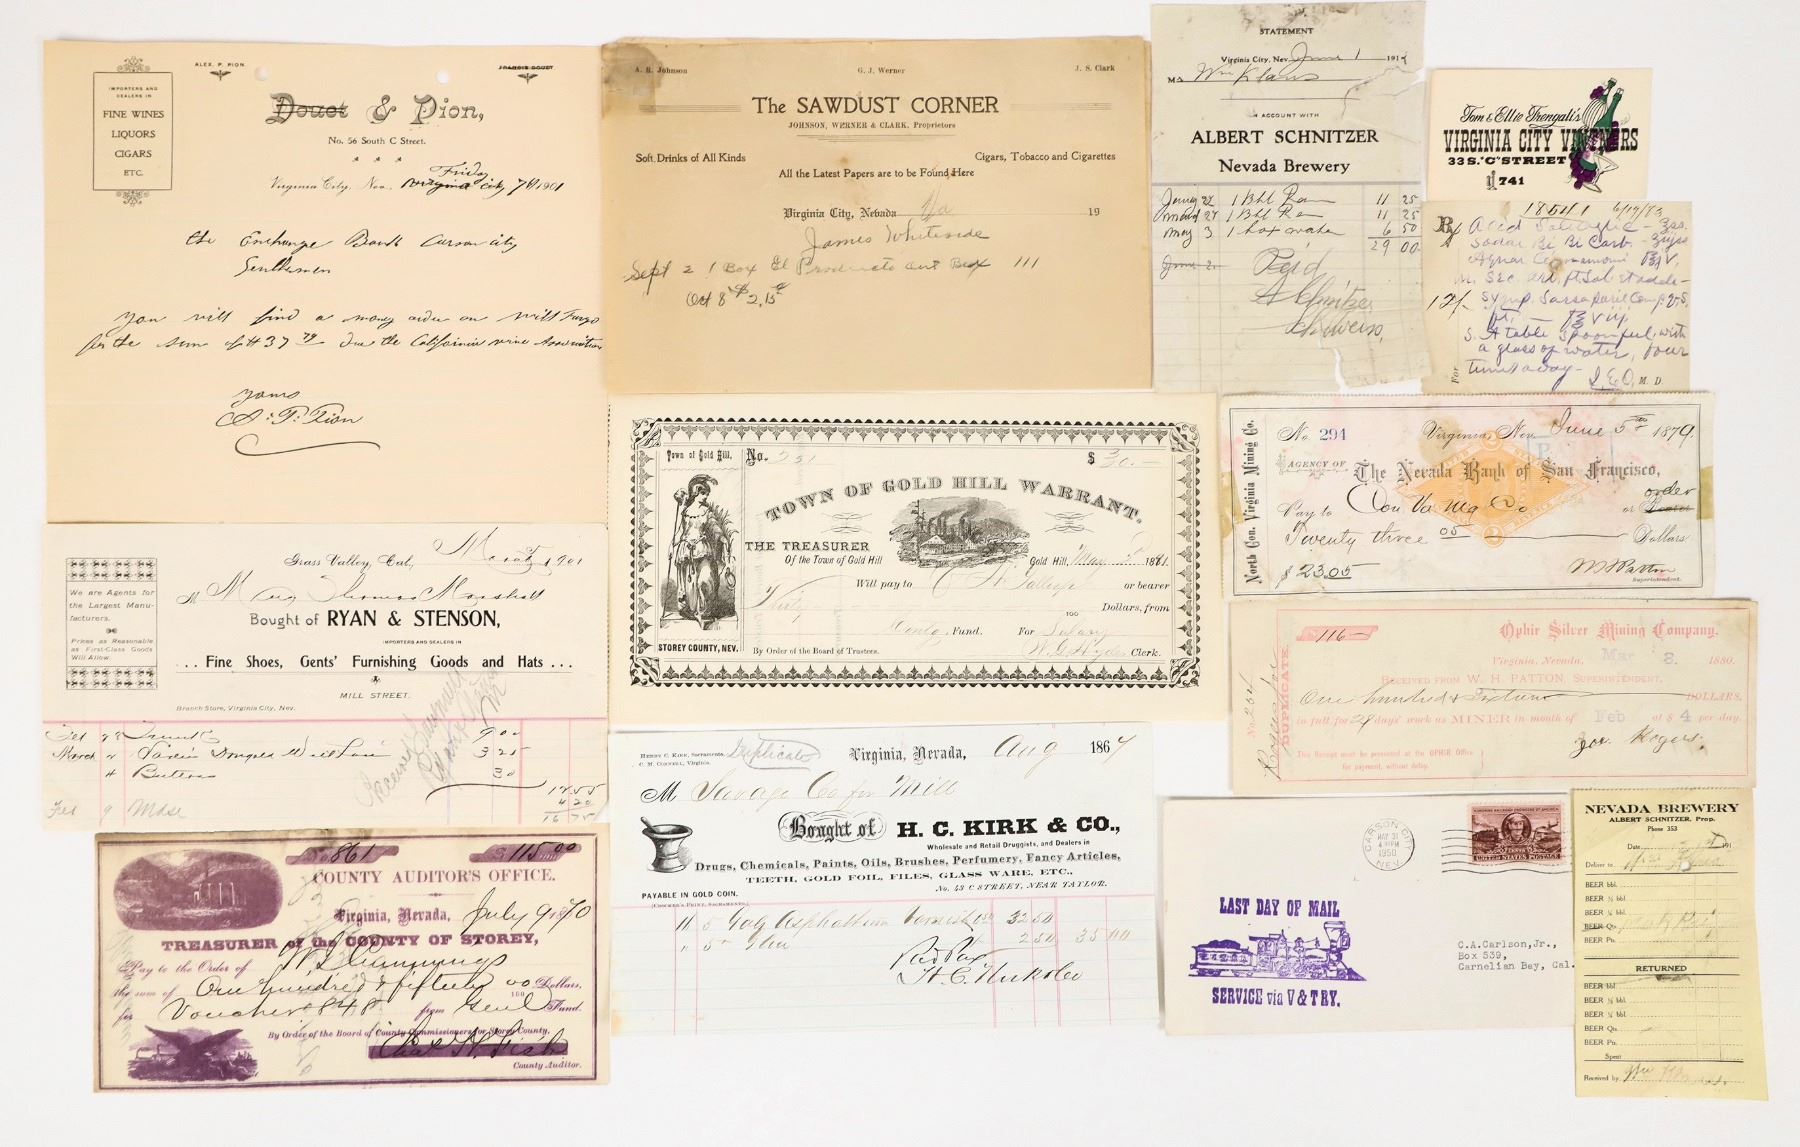 IMPORTERS AND
DEALERS IN
FINE WINES
LIQUORS
CIGARS
ETC.
ALEX. P. PION.
FRANCIS DOUET
Douet & Pion,
No. 56 South C Street.
Friday
Virginia City, Nev. Virginia City 7th 1901
the Exchange Bank Carson City
Gentlemen
You will find a money order on Wells Fargo
for the sum of $ 37 79 due the California Wine Association
Yours
A. P. Pion
A. R. Johnson
G. J. Werner
J. S. Clark
The SAWDUST CORNER
JOHNSON, WERNER & CLARK, Proprietors
Soft Drinks of All Kinds
Cigars, Tobacco and Cigarettes
All the Latest Papers are to be Found Here
Virginia City, Nevada 19
James Whiteside
Sept 2 1 Box El Producto
Oct 8 $2.15
STATEMENT
Virginia City, Nev. June 1 191
M Wm Klaus
IN ACCOUNT WITH
ALBERT SCHNITZER
Nevada Brewery
1 Bbl 11 25
1 Bbl 11 25
May 3 1 box 6 50
29 00
June 2 Paid
A Schnitzer
Tom & Ellie Trengali's
VIRGINIA CITY VINTNERS
33 S. "C" STREET
741
18541 6/19/83
Rx Acid Salicylic
Sodae Bi Carb.
Aquae Cinnamomi
Syrup. Sarsaparil Comp.
S. A table Spoonful, with
a glass of water, four
times a day
For M. D.
Grass Valley, Cal., March 1901
M Mrs Thomas Marshall
We are Agents for
the Largest Manu-
facturers.
Prices as Reasonable
as First-Class Goods
Will Allow.
Bought of RYAN & STENSON,
IMPORTERS AND DEALERS IN
... Fine Shoes, Gents' Furnishing Goods and Hats ...
MILL STREET.
Branch Store, Virginia City, Nev.
Feb 28 9 00
March 3 25
Buttons 30
12 55
Feb 9 Mdse 4 20
16 75
Received Payment
Town of Gold Hill,
No. 331
$ 30.—
TOWN OF GOLD HILL WARRANT.
THE TREASURER
Of the Town of Gold Hill
Gold Hill, May 1881
Will pay to or bearer
Thirty 100 Dollars, from
Contg. Fund. For Salary
By Order of the Board of Trustees.
W. G. Hyde Clerk.
STOREY COUNTY, NEV.
North Con. Virginia Mining Co.
No. 294
Virginia, Nev. June 5th 1879.
AGENCY OF
The Nevada Bank of San Francisco,
Pay to Con Va Mg Co or Bearer order
Twenty three 05 Dollars
$ 23.05
W H Patton
Superintendent.
$ 116—
Ophir Silver Mining Company.
Virginia, Nevada, Mar 8. 1880.
DUPLICATE.
RECEIVED FROM W. H. PATTON, SUPERINTENDENT,
One hundred & Sixteen DOLLARS,
in full for 29 days' work as MINER in month of Feb at $ 4 per day.
(This Receipt must be presented at the OPHIR Office
for payment, without delay.
Jos. Rogers.
No 861
$ 115.00
COUNTY AUDITOR'S OFFICE.
Virginia, Nevada, July 9 1870
TREASURER of the COUNTY OF STOREY,
Pay to the Order of
the sum of One hundred & fifteen 00/100 Dollars.
for Voucher 848 from Genl Fund.
By Order of the Board of County Commissioners for Storey County,
Chas H. Fish
County Auditor.
HENRY C. KIRK, Sacramento.
C. M. CORNELL, Virginia.
Duplicate
Virginia, Nevada, Aug 1867
M Savage Co for Mill
Bought of H. C. KIRK & CO.,
Wholesale and Retail Druggists, and Dealers in
Drugs, Chemicals, Paints, Oils, Brushes, Perfumery, Fancy Articles,
TEETH, GOLD FOIL, FILES, GLASS WARE, ETC.,
PAYABLE IN GOLD COIN.
No. 43 C STREET, NEAR TAYLOR.
(CROCKER'S PRINT, SACRAMENTO.)
11 5 Galg Asphaltum Varnish 32 50
2 50 35 00
H. C. Kirk & Co
CARSON CITY
MAY 31
4 PM
1950
NEV.
HONORING RAILROAD ENGINEERS OF AMERICA
UNITED STATES POSTAGE
LAST DAY OF MAIL
SERVICE via V & T RY.
C.A.Carlson,Jr.,
Box 539,
Carnelian Bay, Cal.
NEVADA BREWERY
ALBERT SCHNITZER, Prop.
Phone 353
Date 191
Deliver to
BEER bbl.
BEER ½ bbl.
BEER ¼ bbl.
BEER Qts.
BEER Pts.
RETURNED
BEER bbl.
BEER ½ bbl.
BEER ¼ bbl.
BEER Qts.
BEER Pts.
Spent
Received by Wm Klaus